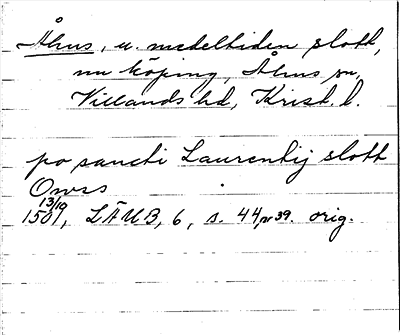 Åhus, u. medeltiden slott,
nu köping, Åhus sn,
Villands hd, Krist. l.
po sancti Laurentij slott
Owss
13/10
1501, LÄUB, 6, s. 44 nr 39. orig.